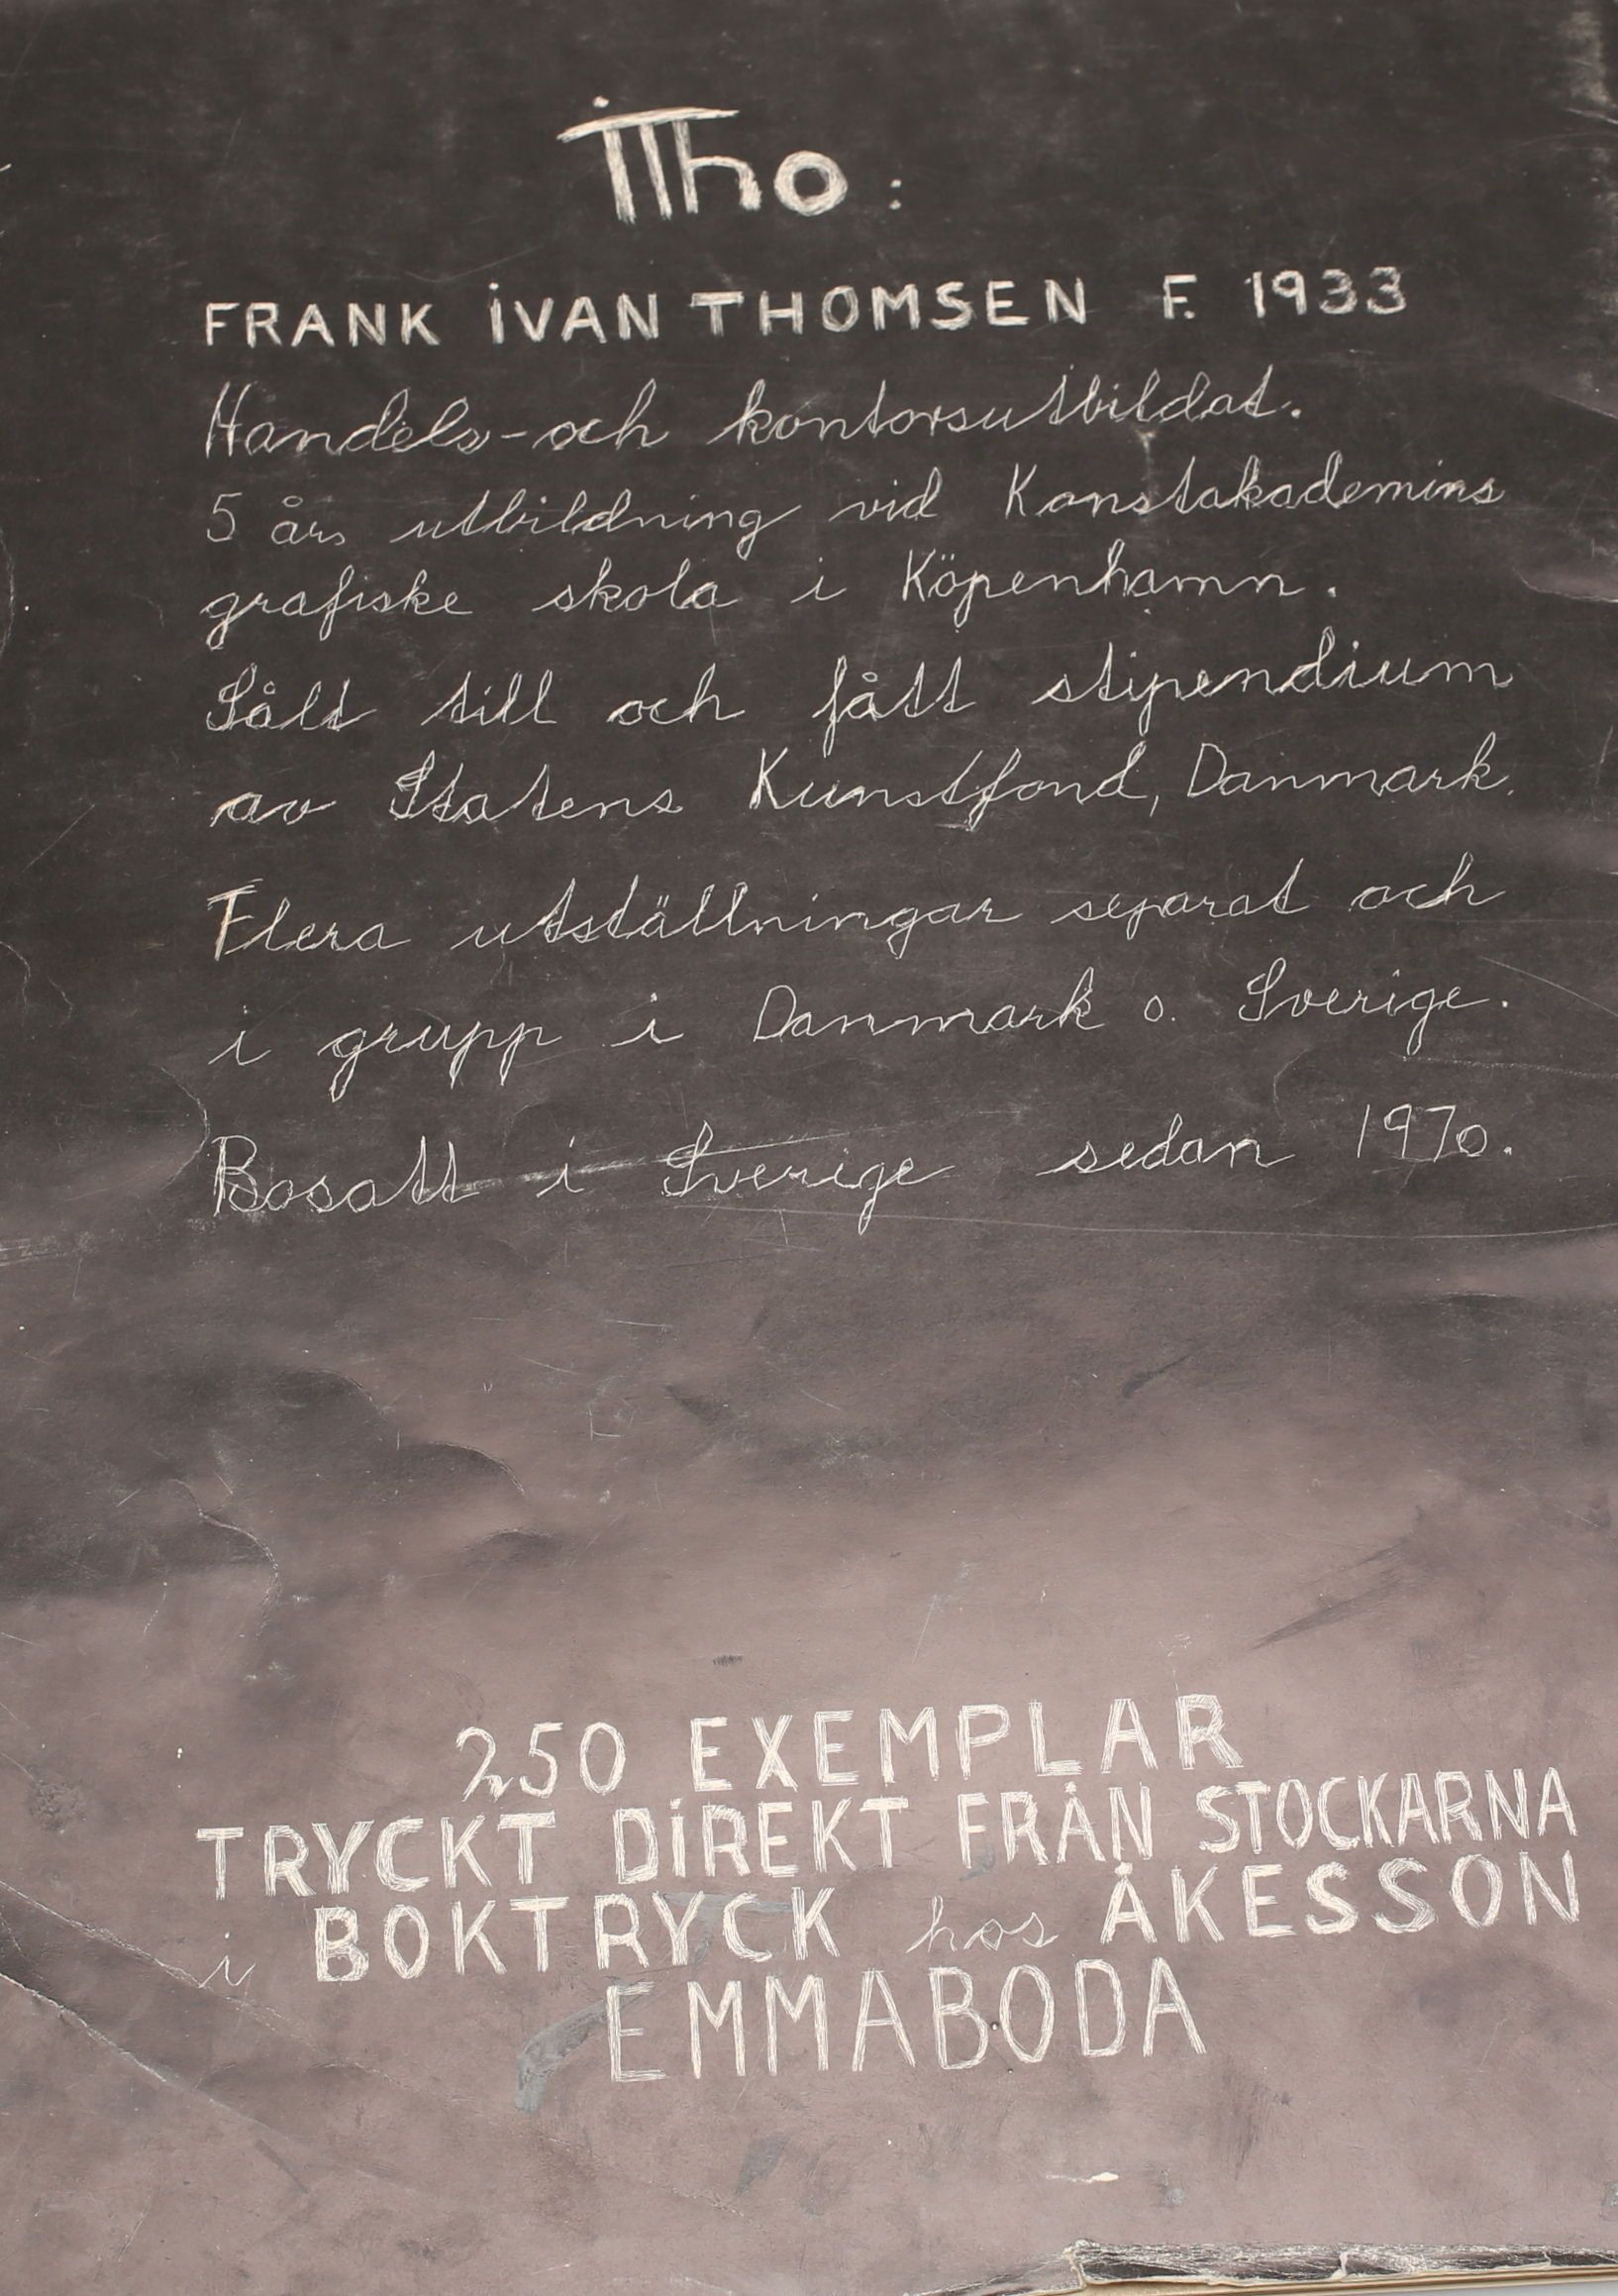 iTho:
FRANK IVAN THOMSEN F. 1933
Handels-och kontorsutbildat.
5 års utbildning vid Konstakademins
grafiske skola i Köpenhamn.
Sålt till och fått stipendium
av Statens Kunstfond, Danmark.
Flera utställningar separat och
i grupp i Danmark o. Sverige.
Bosatt i Sverige sedan 1970.
250 EXEMPLAR
TRYCKT DIREKT FRÅN STOCKARNA
i BOKTRYCK hos ÅKESSON
EMMABODA